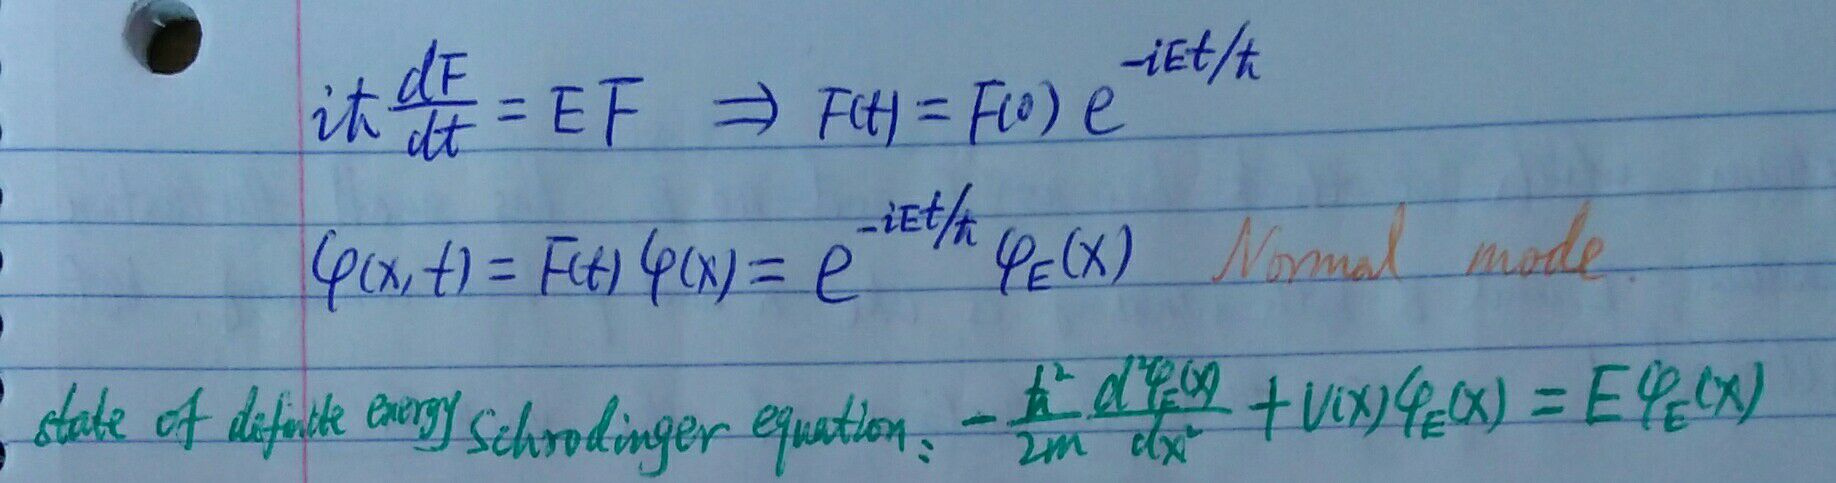 iħ dF/dt = EF ⇒ F(t) = F(0) e^{-iEt/ħ}
φ(x,t) = F(t) φ(x) = e^{-iEt/ħ} φ_E(x) Normal mode.
state of definite energy Schrodinger equation: -ħ²/2m d²φ_E(x)/dx² + V(x) φ_E(x) = E φ_E(x)